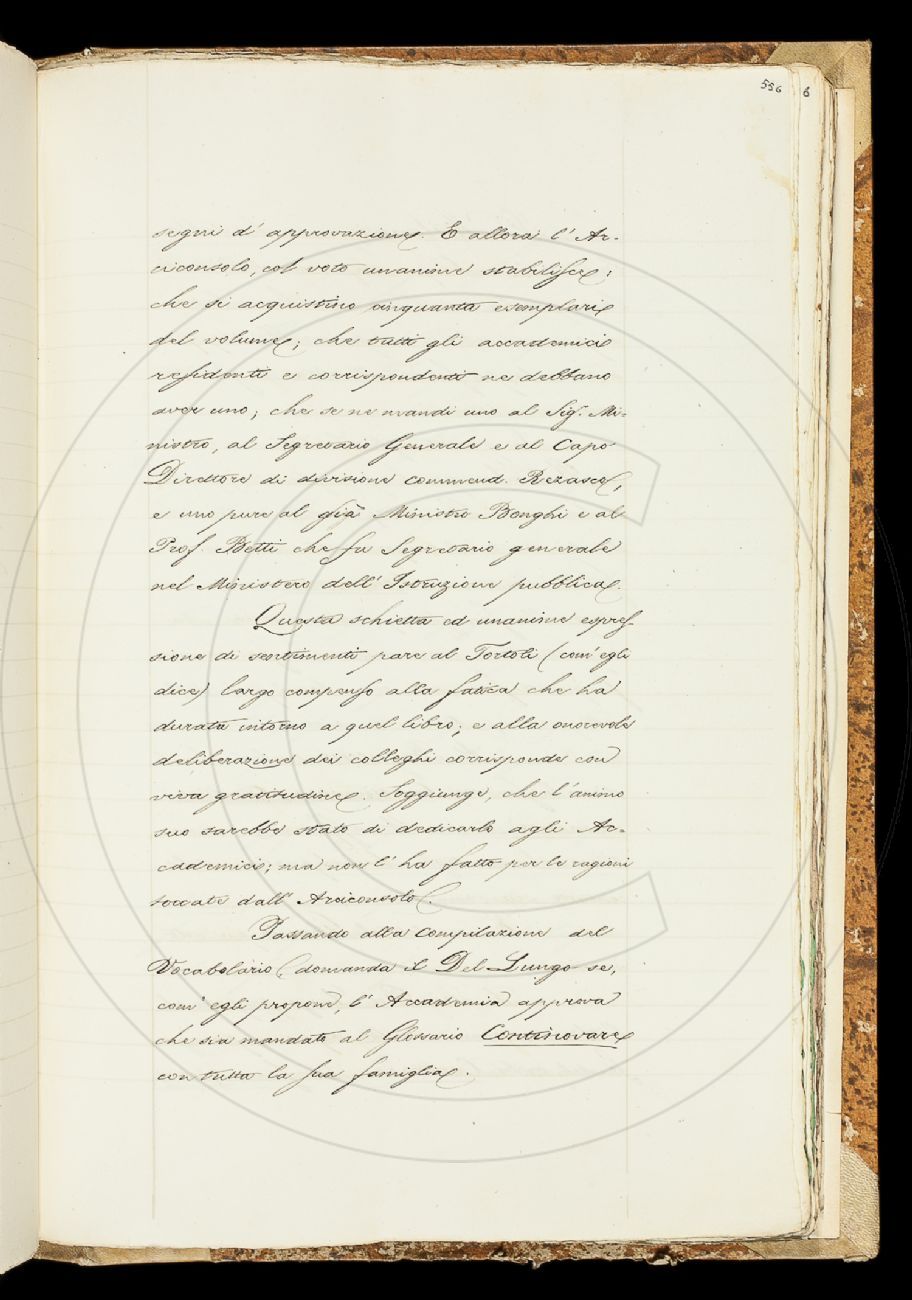 556 6
segni d' approvazione. E allora l' Ar-
ciconsolo, col voto unanime stabilisce:
che si acquistino cinquanta esemplari
del volume; che tutti gli accademici
residenti e corrispondenti ne debbano
aver uno; che se ne mandi uno al Sig. Mi-
nistro, al Segretario Generale e al Capo
Direttore di divisione commend. Rezasco,
e uno pure al già Ministro Bonghi e al
Prof. Betti che fu Segretario generale
nel Ministero dell' Istruzione pubblica.
Questa schietta ed unanime espres-
sione di sentimenti pare al Tortoli (com' egli
dice) largo compenso alla fatica che ha
durata intorno a quel libro; e alla onorevole
deliberazione dei colleghi corrisponde con
viva gratitudine. Soggiunge, che l' animo
suo sarebbe stato di dedicarlo agli Ac-
cademici; ma non l' ha fatto per le ragioni
toccate dall' Arciconsolo.
Passando alla compilazione del
Vocabolario, domanda il Del Lungo se,
com' egli propone, l' Accademia approva
che sia mandato al Glossario Continovare
con tutta la sua famiglia.